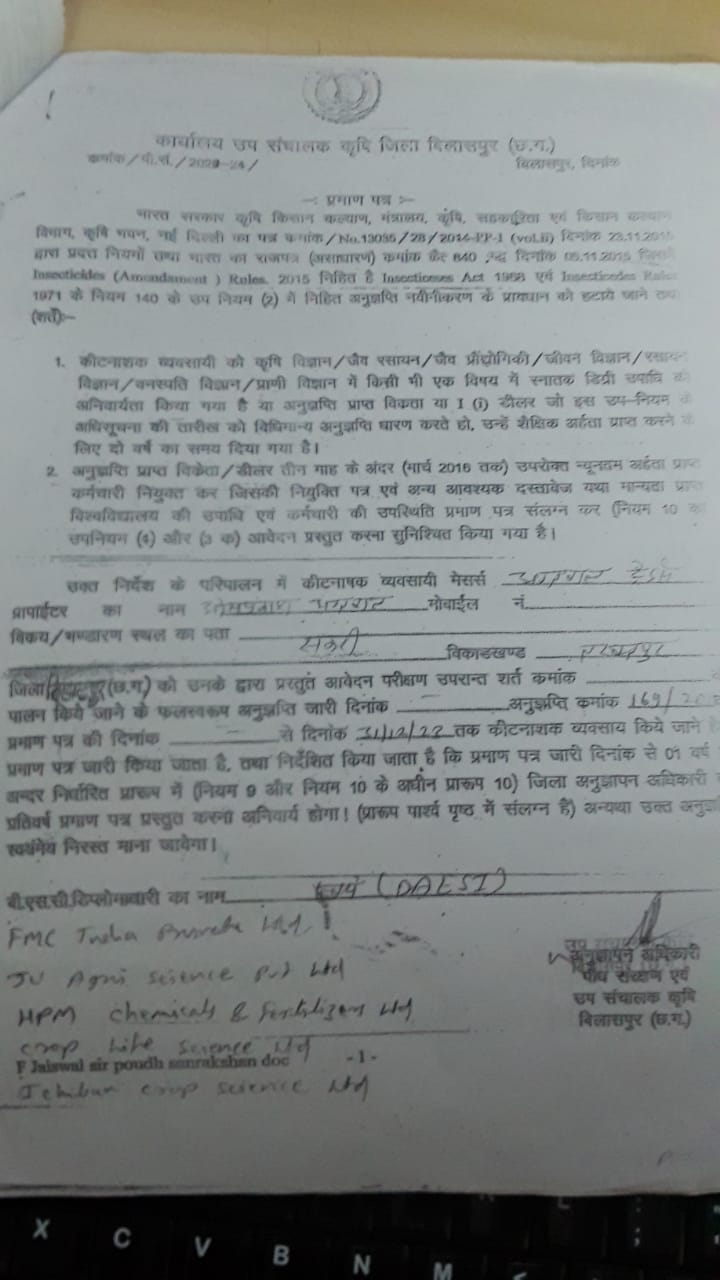 कार्यालय उप संचालक कृषि जिला बिलासपुर (छ.ग.)
क्रमांक/पी.सं./2023-24/ बिलासपुर, दिनांक
-: प्रमाण पत्र :-
भारत सरकार कृषि किसान कल्याण, मंत्रालय, कृषि, सहकारिता एवं किसान कल्याण
विभाग, कृषि भवन, नई दिल्ली का पत्र क्रमांक/No.13035/28/2014-PP-I (vol.ii) दिनांक 23.11.2015
द्वारा प्रदत्त नियमों तथा भारत का राजपत्र (असाधारण) क्रमांक 840 दिनांक 05.11.2015 जिसमें
Insecticides (Amendament ) Rules, 2015 निहित है Act 1968 एवं Rules
1971 के नियम 140 के उप नियम (2) में निहित अनुज्ञप्ति नवीनीकरण के प्रावधान को हटाये जाने तथा
(शर्तें):-
1. कीटनाशक व्यवसायी को कृषि विज्ञान/जैव रसायन/जैव प्रौद्योगिकी/जीवन विज्ञान/रसायन
विज्ञान/वनस्पति विज्ञान/प्राणी विज्ञान में किसी भी एक विषय में स्नातक डिग्री उपाधि की
अनिवार्यता किया गया है या अनुज्ञप्ति प्राप्त विक्रेता या I (i) डीलर जो इस उप-नियम के
अधिसूचना की तारीख को विधिमान्य अनुज्ञप्ति धारण करते हो, उन्हें शैक्षिक अर्हता प्राप्त करने के
लिए दो वर्ष का समय दिया गया है।
2. अनुज्ञप्ति प्राप्त विक्रेता/डीलर तीन माह के अंदर (मार्च 2016 तक) उपरोक्त न्यूनतम अर्हता प्राप्त
कर्मचारी नियुक्त कर जिसकी नियुक्ति पत्र एवं अन्य आवश्यक दस्तावेज यथा मान्यता प्राप्त
विश्वविद्यालय की उपाधि एवं कर्मचारी की उपस्थिति प्रमाण पत्र संलग्न कर (नियम 10 का
उपनियम (4) और (3 क) आवेदन प्रस्तुत करना सुनिश्चित किया गया है।
उक्त निर्देश के परिपालन में कीटनाषक व्यवसायी मेसर्स
प्रापाईटर का नाम मोबाईल नं.
विक्रय/भण्डारण स्थल का पता सकरी विकाडखण्ड
जिला (छ.ग.) को उनके द्वारा प्रस्तुत आवेदन परीक्षण उपरान्त शर्त कमांक
पालन किये जाने के फलस्वरूप अनुज्ञप्ति जारी दिनांक अनुज्ञप्ति कमांक 169/
प्रमाण पत्र की दिनांक से दिनांक 31/12/22 तक कीटनाशक व्यवसाय किये जाने
प्रमाण पत्र जारी किया जाता है, तथा निर्देशित किया जाता है कि प्रमाण पत्र जारी दिनांक से 01 वर्ष
अन्दर निर्धारित प्रारूप में (नियम 9 और नियम 10 के अधीन प्रारूप 10) जिला अनुज्ञापन अधिकारी
प्रतिवर्ष प्रमाण पत्र प्रस्तुत करना अनिवार्य होगा। (प्रारूप पार्श्व पृष्ठ में संलग्न हैं) अन्यथा उक्त
स्वमेव निरस्त माना जावेगा।
बी.एस.सी.डिप्लोमाधारी का नाम स्वयं (DAESI)
FMC India Private Ltd.
JU Agri Science Pvt Ltd
HPM Chemicals & Fertilizers Ltd
Crop Life Science Ltd
F Jaiswal sir poudh sanrakshan doc -1-
crop science Ltd
अनुज्ञापन अधिकारी
पौध संरक्षण एवं
उप संचालक कृषि
बिलासपुर (छ.ग.)
X C V B N M